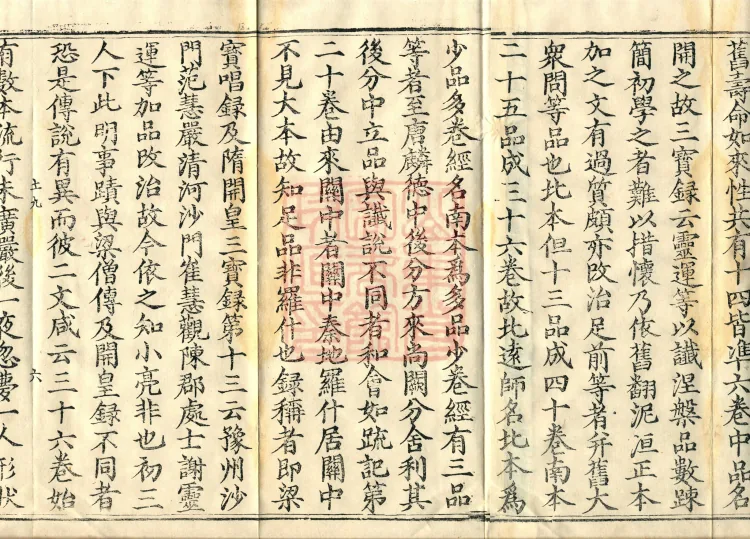 舊壽命如來性共有十四皆準六卷中品名
開之故三寶録云靈運等以讖涅槃品數踈
簡初學之者難以措懷乃依舊翻泥洹正本
加之文有過質頗亦改治足前等者幷舊大
衆問等品也北本但十三品成四十卷南本
二十五品成三十六卷故北遠師名北本為
少品多卷經名南本為多品少卷經有三品
等者至唐麟德中後分方來尚闕分舍利其
後分中立品與讖說不同者和會如䟽記第
二十卷由來關中者關中秦地羅什居關中
不見大本故知足品非羅什也録稱者即梁
寶唱録及隋開皇三寶録第十三云豫州沙
門范慧嚴清河沙門崔慧觀陳郡處士謝靈
運等加品改治故今依之知小亮非也初三
人下此明事蹟與梁僧傳及開皇録不同者
恐是傳說有異而彼一文咸云三十六卷始
六
有數本流行未廣嚴後一夜忽夢一人形状